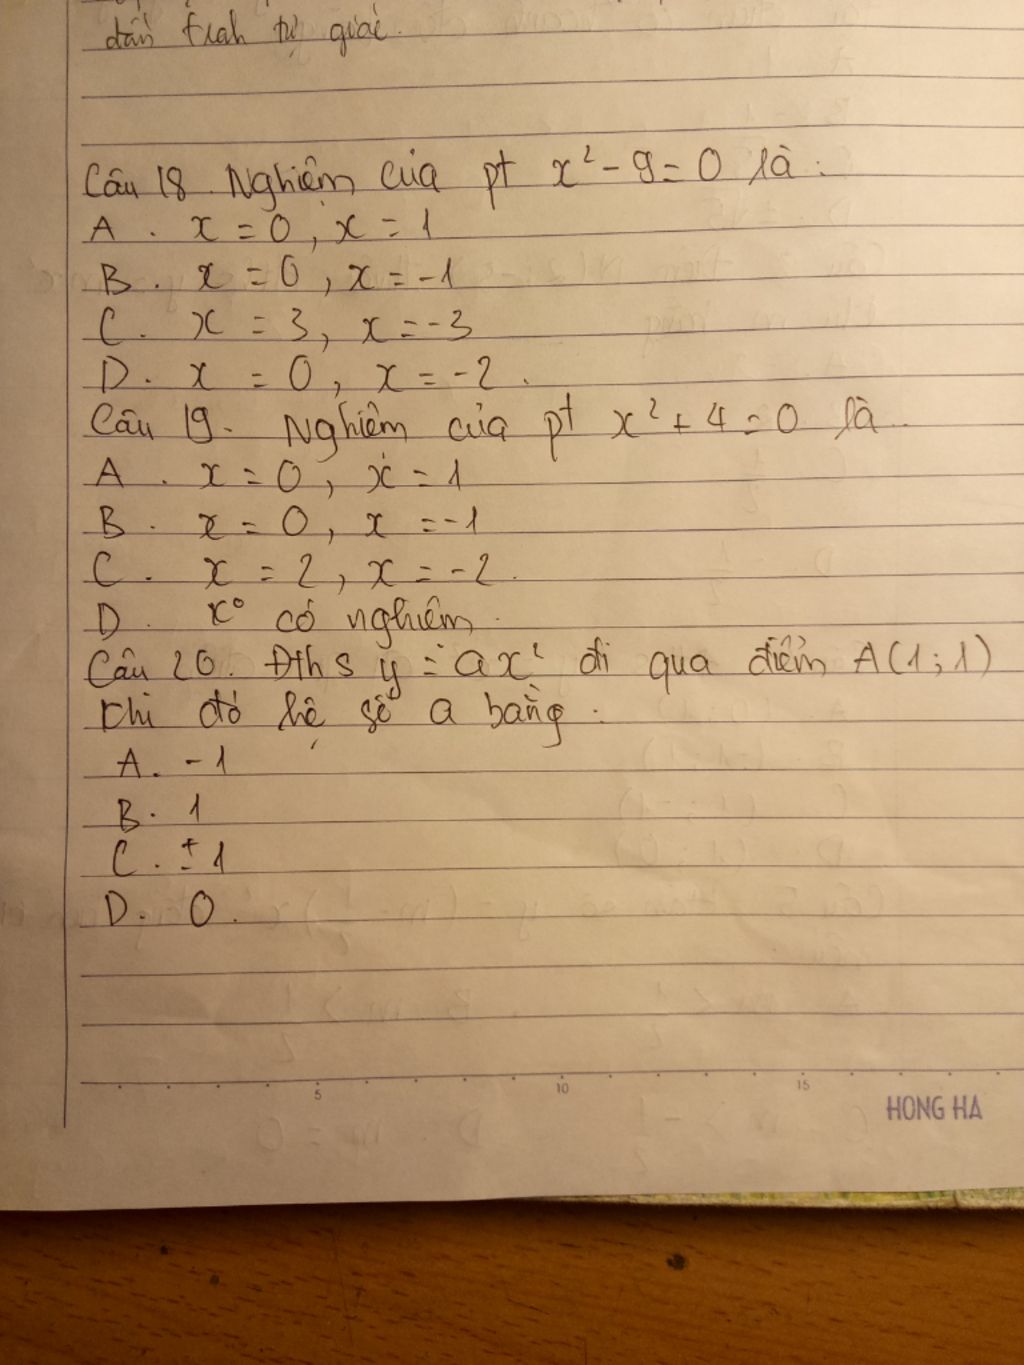 dẫn
tự giác.
Câu 18. Nghiệm của pt x² - 9 = 0 là:
A. x = 0, x = 1
B. x = 0, x = -1
C. x = 3, x = -3
D. x = 0, x = -2.
Câu 19. Nghiệm của pt x² + 4 = 0 là.
A. x = 0, x = 1
B. x = 0, x = -1
C. x = 2, x = -2.
D. K° có nghiệm.
Câu 20. Đths y = ax² đi qua điểm A(1; 1)
khi đó hệ số a bằng:
A. -1
B. 1
C. ±1
D. 0.
5 10 15
HONG HA